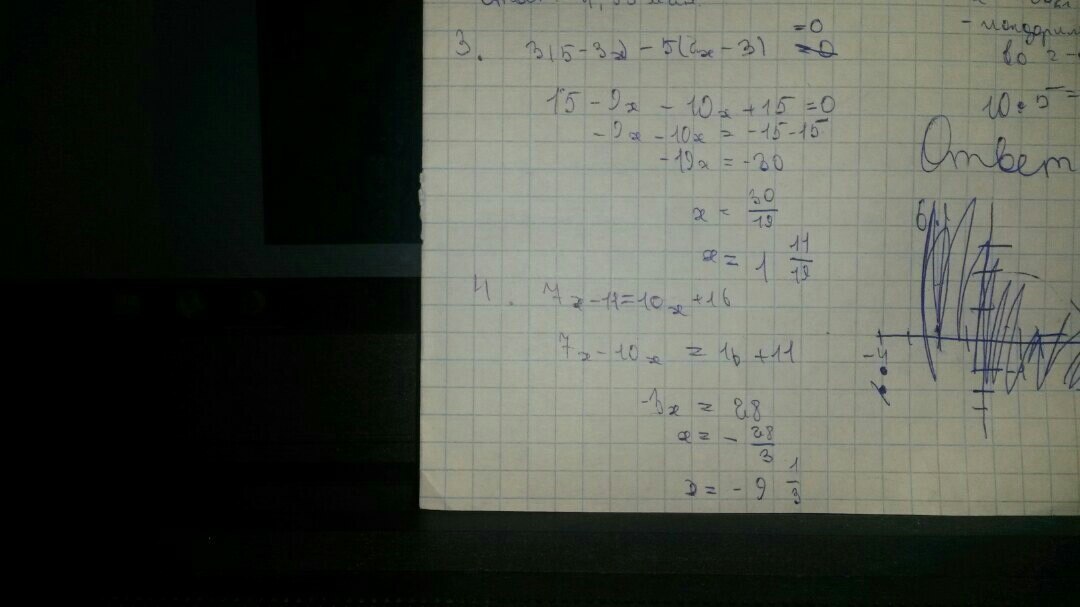 3. 3(5-3x) - 5(2x-3) =0
15 - 9x - 10x + 15 = 0
-9x - 10x = -15-15
-19x = -30
x = 30/19
x = 1 11/19
4. 7x-11=10x+16
7x-10x = 16+11
-3x = 28
x = - 28/3
x = - 9 1/3
10 · 5 =
Ответ
6.
-4